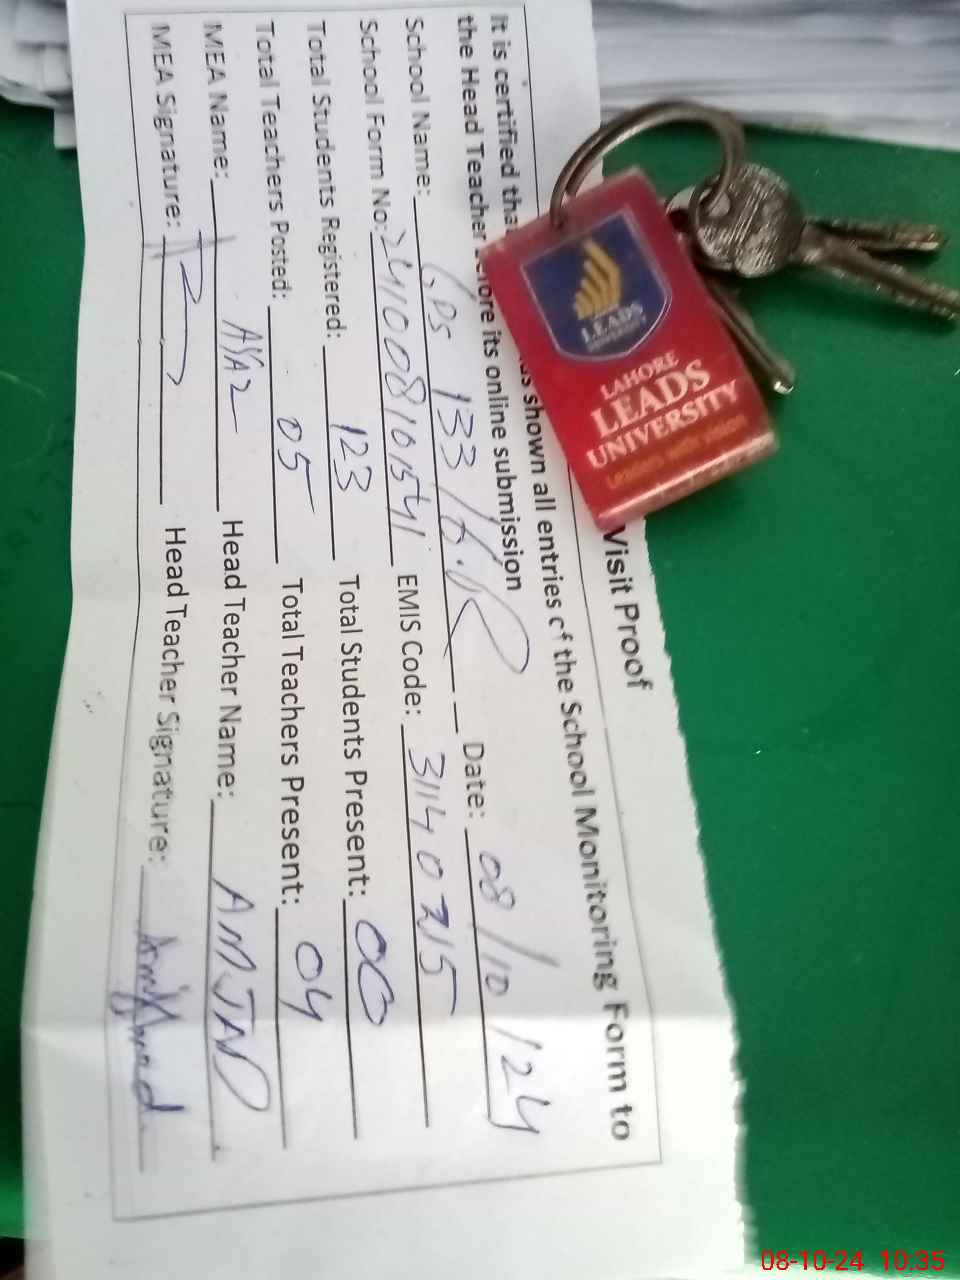 Visit Proof
It is certified tha us shown all entries of the School Monitoring Form to
the Head Teacher before its online submission
School Name: GPS 133/6.R Date: 08/10/24
School Form No: 241008101541 EMIS Code: 31140215
Total Students Registered: 123 Total Students Present: 00
Total Teachers Posted: 05 Total Teachers Present: 04
MEA Name: AYAZ Head Teacher Name: AMJAD
MEA Signature: Head Teacher Signature:
LEADS
UNIVERSITY
LAHORE
LEADS
UNIVERSITY
Leaders with vision
08-10-24 10:35